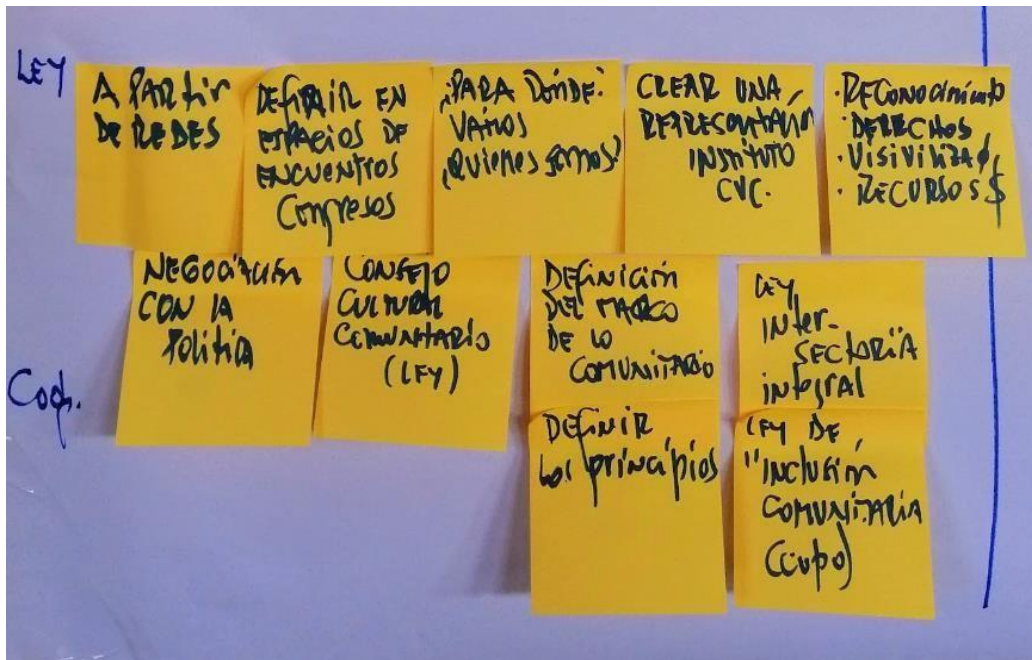 LEY
A PARtir
DE REDES
DEFINIR EN
ESPACIOS DE
ENCUENtROS
Congresos
¿PARA DóNDE
VAMOS
¿Quienes somos?
CREAR UNA
REPRESENtACIÓN
INStitUtO
CVC.
·RECONOcimiento
·DERECHOS
·VISIVILIZA
·RECURSOS $
NEGOCIACIÓN
CON LA
Politica
CONSEJO
CULTURAL
COMUNITARIO
(LEY)
DEFINICIÓN
DEL MARCO
DE LO
COMUNITARIO
LEY
INter-
SECtORIA
integral
DEFINIR
los principios
LEY DE
"INCLUSIÓN
COMUNITARIA
(CUPO)